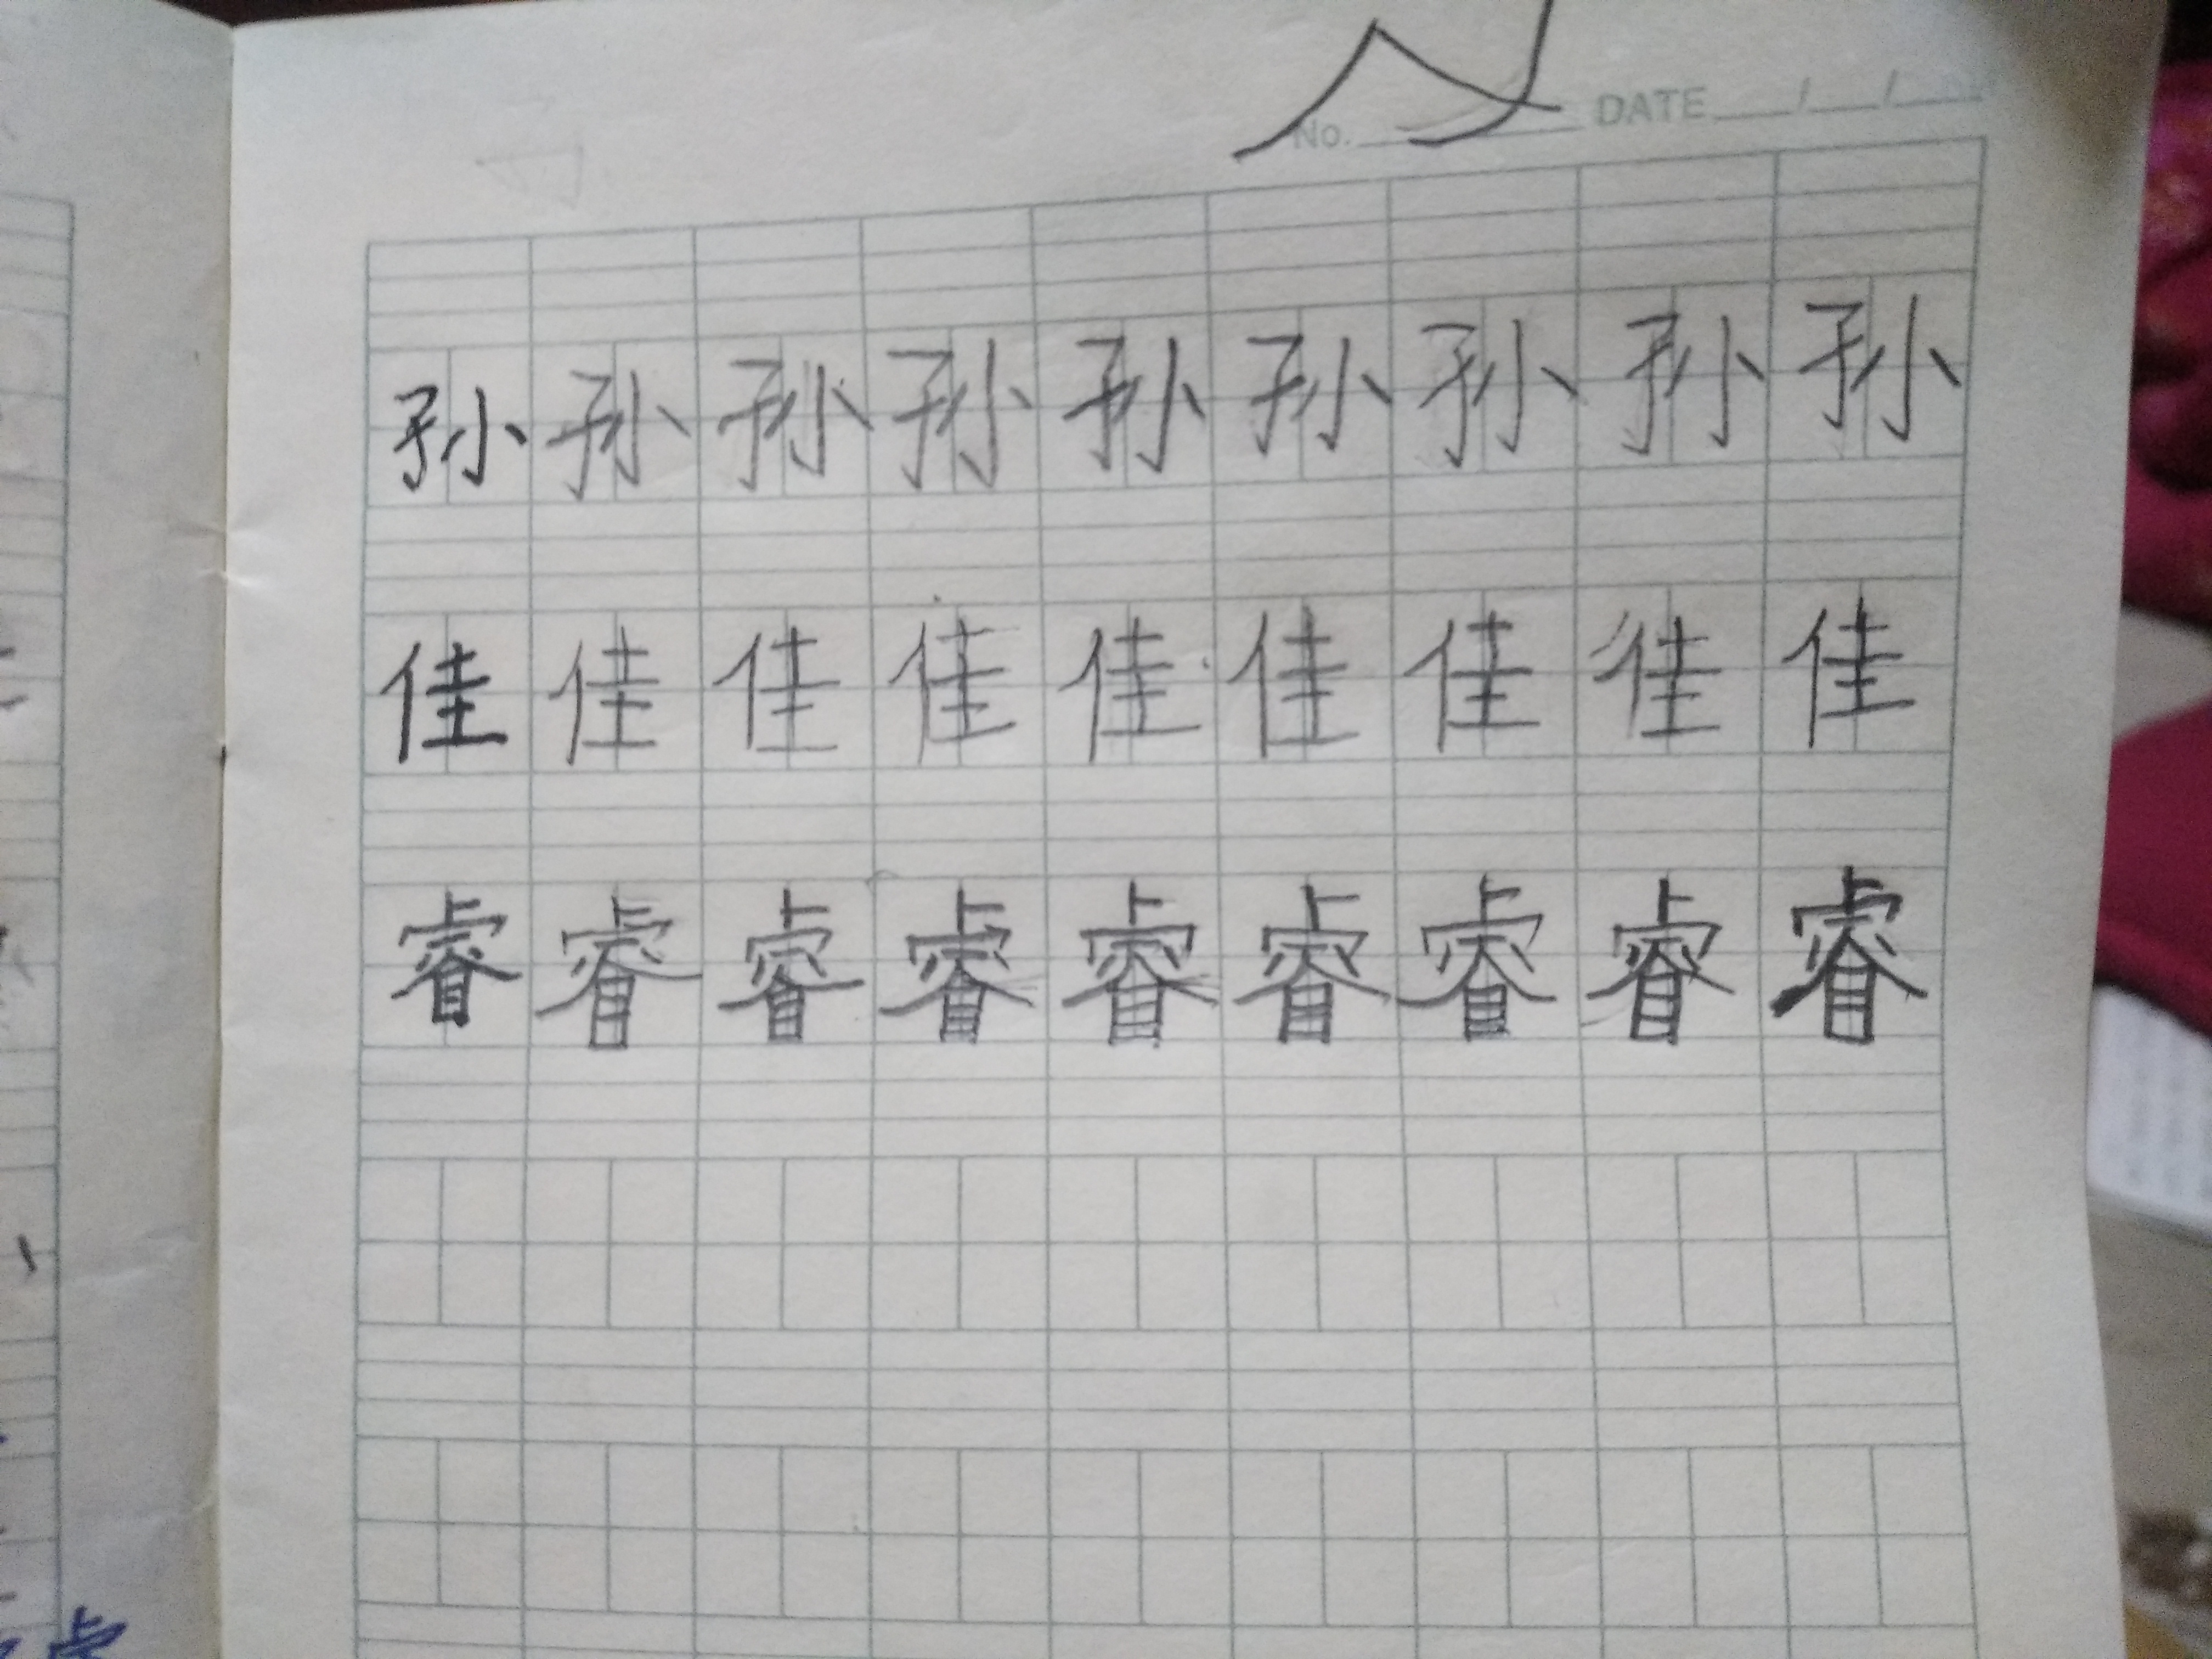 No. DATE / /
孙 孙 孙 孙 孙 孙 孙 孙 孙
佳 佳 佳 佳 佳 佳 佳 佳 佳
睿 睿 睿 睿 睿 睿 睿 睿 睿